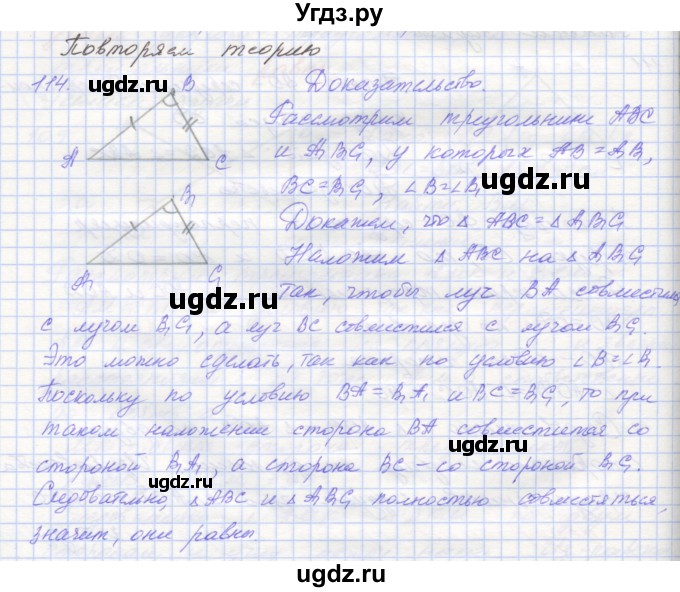 Угдз.ру
Повторяем теорию
ugdz.ru ugdz.ru
114. B Доказательство.
Рассмотрим треугольники ABC
A C и A₁B₁C₁, у которых AB = A₁B₁
BC = B₁C₁, ∠B = ∠B₁
ugdz.ru ugdz.ru
B₁ Докажем, что △ABC = △A₁B₁C₁
Наложим △ABC на △A₁B₁C₁
A₁ C₁ так, чтобы луч BA совместился
ugdz.ru
с лучом B₁C₁, а луч BC совместился с лучом B₁C₁.
Это можно сделать, так как по условию ∠B = ∠B₁.
Поскольку по условию BA = B₁A₁ и BC = B₁C₁, то при
ugdz.ru ugdz.ru
таком наложении сторона BA совместится со
стороной B₁A₁, а сторона BC – со стороной B₁C₁.
ugdz.ru ugdz.ru
Следовательно, △ABC и △A₁B₁C₁ полностью совместятся,
значит, они равны.
ugdz.ru